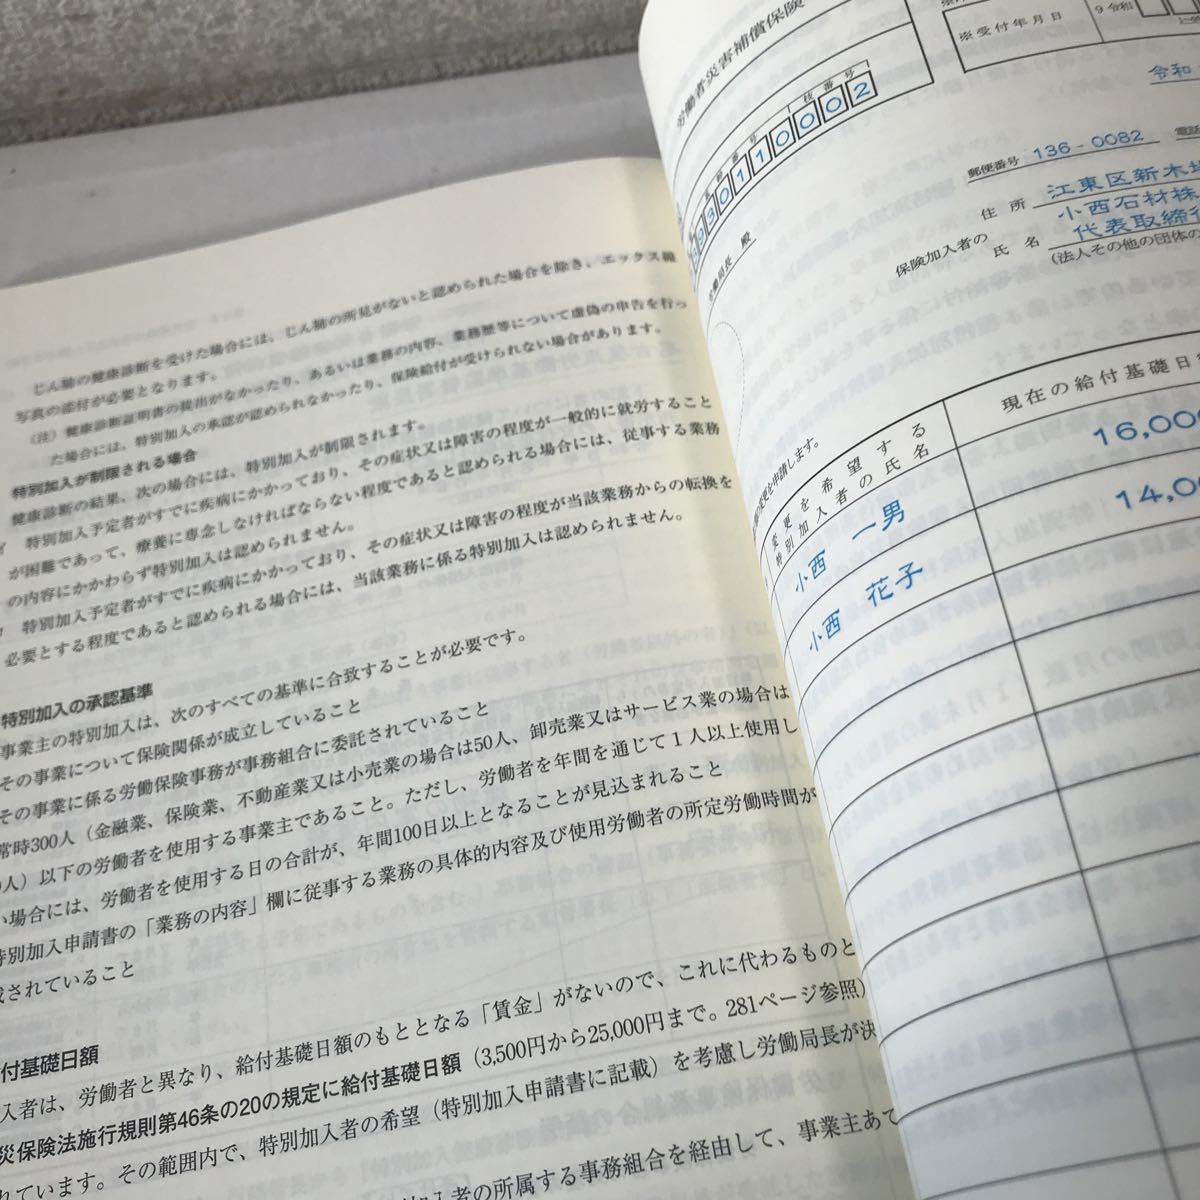 じん肺の健康診断を受けた場合には、じん肺の所見がないと認められた場合を除き、エックス線
写真の添付が必要となります。
(注) 健康診断証明書の提出がなかったり、あるいは業務の内容、業務歴等について虚偽の申告を行っ
た場合には、特別加入の承認が認められなかったり、保険給付が受けられない場合があります。
特別加入が制限される場合
健康診断の結果、次の場合には、特別加入が制限されます。
特別加入予定者がすでに疾病にかかっており、その症状又は障害の程度が一般的に就労すること
が困難であって、療養に専念しなければならない程度であると認められる場合には、従事する業務
の内容にかかわらず特別加入は認められません。
特別加入予定者がすでに疾病にかかっており、その症状又は障害の程度が当該業務からの転換を
必要とする程度であると認められる場合には、当該業務に係る特別加入は認められません。
特別加入の承認基準
事業主の特別加入は、次のすべての基準に合致することが必要です。
その事業について保険関係が成立していること
その事業に係る労働保険事務が事務組合に委託されていること
常時300人（金融業、保険業、不動産業又は小売業の場合は50人、卸売業又はサービス業の場合は
0人）以下の労働者を使用する事業主であること。ただし、労働者を年間を通じて１人以上使用し
い場合には、労働者を使用する日の合計が、年間100日以上となることが見込まれること
特別加入申請書の「業務の内容」欄に従事する業務の具体的内容及び使用労働者の所定労働時間が
載されていること
付基礎日額
入者は、労働者と異なり、給付基礎日額のもととなる「賃金」がないので、これに代わるものと
災保険法施行規則第46条の20の規定に給付基礎日額（3,500円から25,000円まで。281ページ参照）
れています。その範囲内で、特別加入者の希望（特別加入申請書に記載）を考慮し労働局長が決
加入者の所属する事務組合を経由して、事業主あて
労働者災害補償保険
※受付年月日
9令和
枝番号
930110002
令和
郵便番号 136-0082
電話
住所 江東区新木場
小西石材株
保険加入者の
氏名 代表取締役
(法人その他の団体の
労働局長 殿
額の変更を申請します。
変更を希望する
特別加入者の氏名
現在の給付基礎日額
小西 一男
16,000
小西 花子
14,00